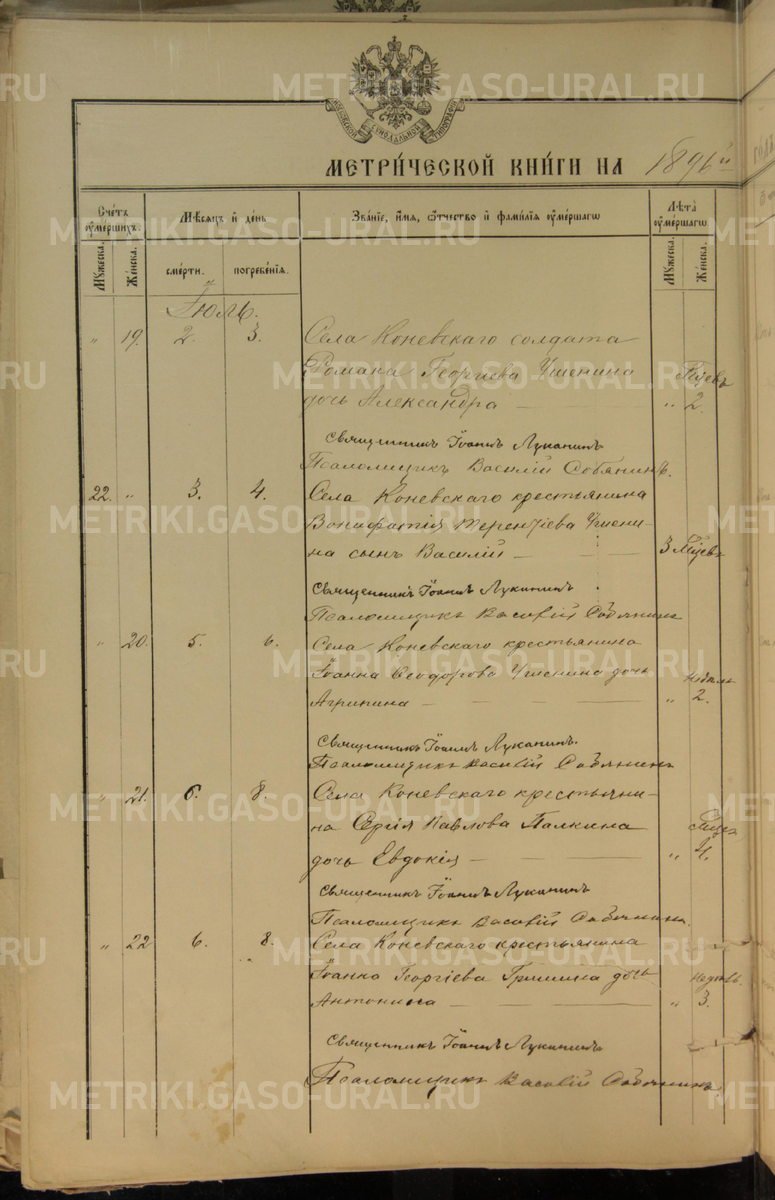 МЕТРИЧЕСКОЙ КНИГИ НА 1896й
Счетъ умершихъ.
Мужеска. Женска.
Мѣсяцъ и день
смерти. погребенія.
Званіе, имя, отчество и фамилія умершаго
Лѣта умершаго.
Мужеска. Женска.
Іюль.
" 19. 2. 3. Села Коневскаго солдата
Романа Георгіева Ушенина
дочь Александра " 2.
Священникъ Іоаннъ Луканинъ
Псаломщикъ Василій Собянинъ.
22. " 3. 4. Села Коневскаго крестьянина
Вонифатія Терентіева Ушени-
на сынъ Василій 3 Мѣсѣ
Священникъ Іоаннъ Луканинъ
Псаломщикъ Василій Собянинъ
" 20. 5. 6. Села Коневскаго крестьянина
Іоанна Ѳеодорова Ушенина дочь
Агрипина " 2.
Священникъ Іоаннъ Луканинъ.
Псаломщикъ Василій Собянинъ
" 21. 6. 8. Села Коневскаго крестьяни-
на Сергія Павлова Палкина
дочь Евдокія " 4.
Священникъ Іоаннъ Луканинъ
Псаломщикъ Василій Собянинъ.
" 22 6. 8. Села Коневскаго крестьянина
Іоанна Георгіева Гришина дочь
Антонина " 3.
Священникъ Іоаннъ Луканинъ
Псаломщикъ Василій Собянинъ
METRIKI.GASO-URAL.RU